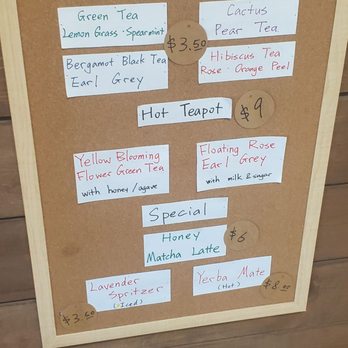 Green Tea
Lemon Grass · Spearmint
Cactus
Pear Tea
$3.50
Bergamot Black Tea
Earl Grey
Hibiscus Tea
Rose · Orange Peel
Hot Teapot
$9
Yellow Blooming
Flower Green Tea
with honey/agave
Floating Rose
Earl Grey
with milk & sugar
Special
Honey
Matcha Latte
$6
Lavender
Spritzer
(Iced)
$3.50
Yerba Mate
(Hot)
$8.00